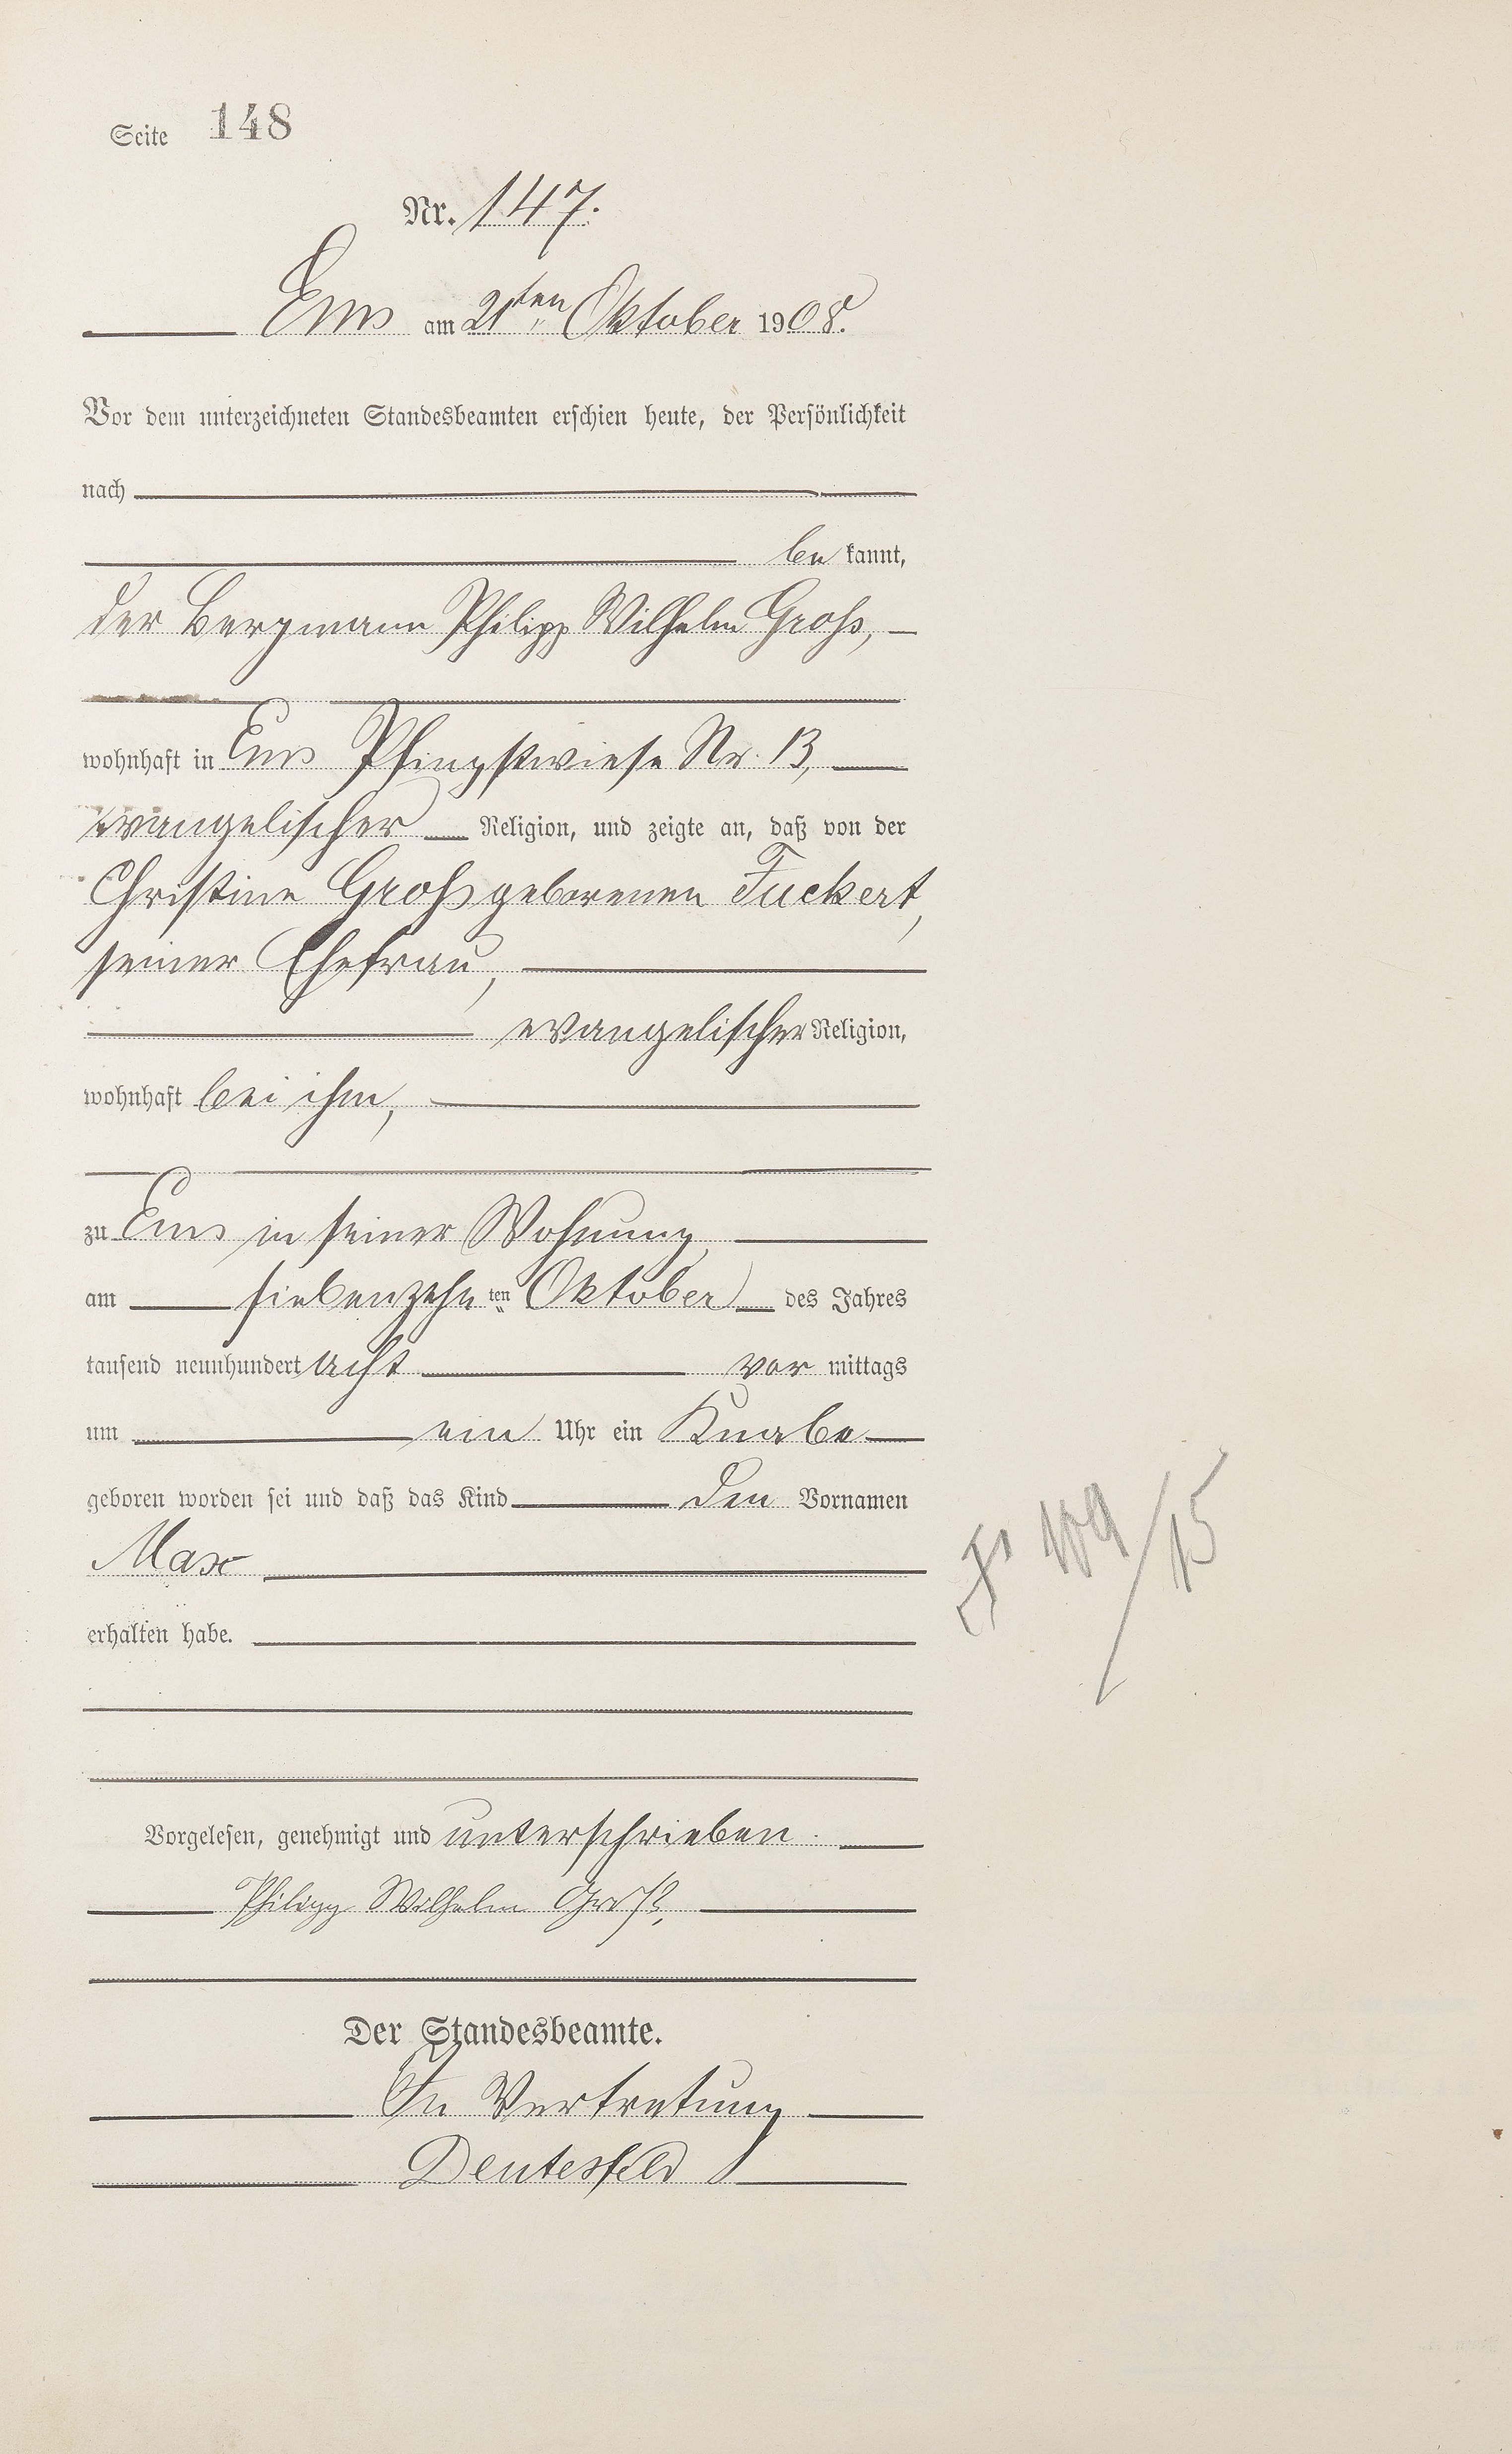 Seite 148
Nr. 147.
Ems am 21ten Oktober 1908.
Vor dem unterzeichneten Standesbeamten erschien heute, der Persönlichkeit
nach
be kannt,
der Bergmann Philipp Wilhelm Groß,
wohnhaft in Ems Pfingstwiese Nr. 13,
evangelischer Religion, und zeigte an, daß von der
Christine Groß geborenen Fuckert,
seiner Ehefrau,
evangelischer Religion,
wohnhaft bei ihm,
zu Ems in seiner Wohnung,
am siebenzehn ten Oktober des Jahres
tausend neunhundert acht vor mittags
um ein Uhr ein Knabe
geboren worden sei und daß das Kind den Vornamen
Max
109/15
erhalten habe.
Vorgelesen, genehmigt und unterschrieben.
Philipp Wilhelm Groß,
Der Standesbeamte.
In Vertretung
Deutesfeld